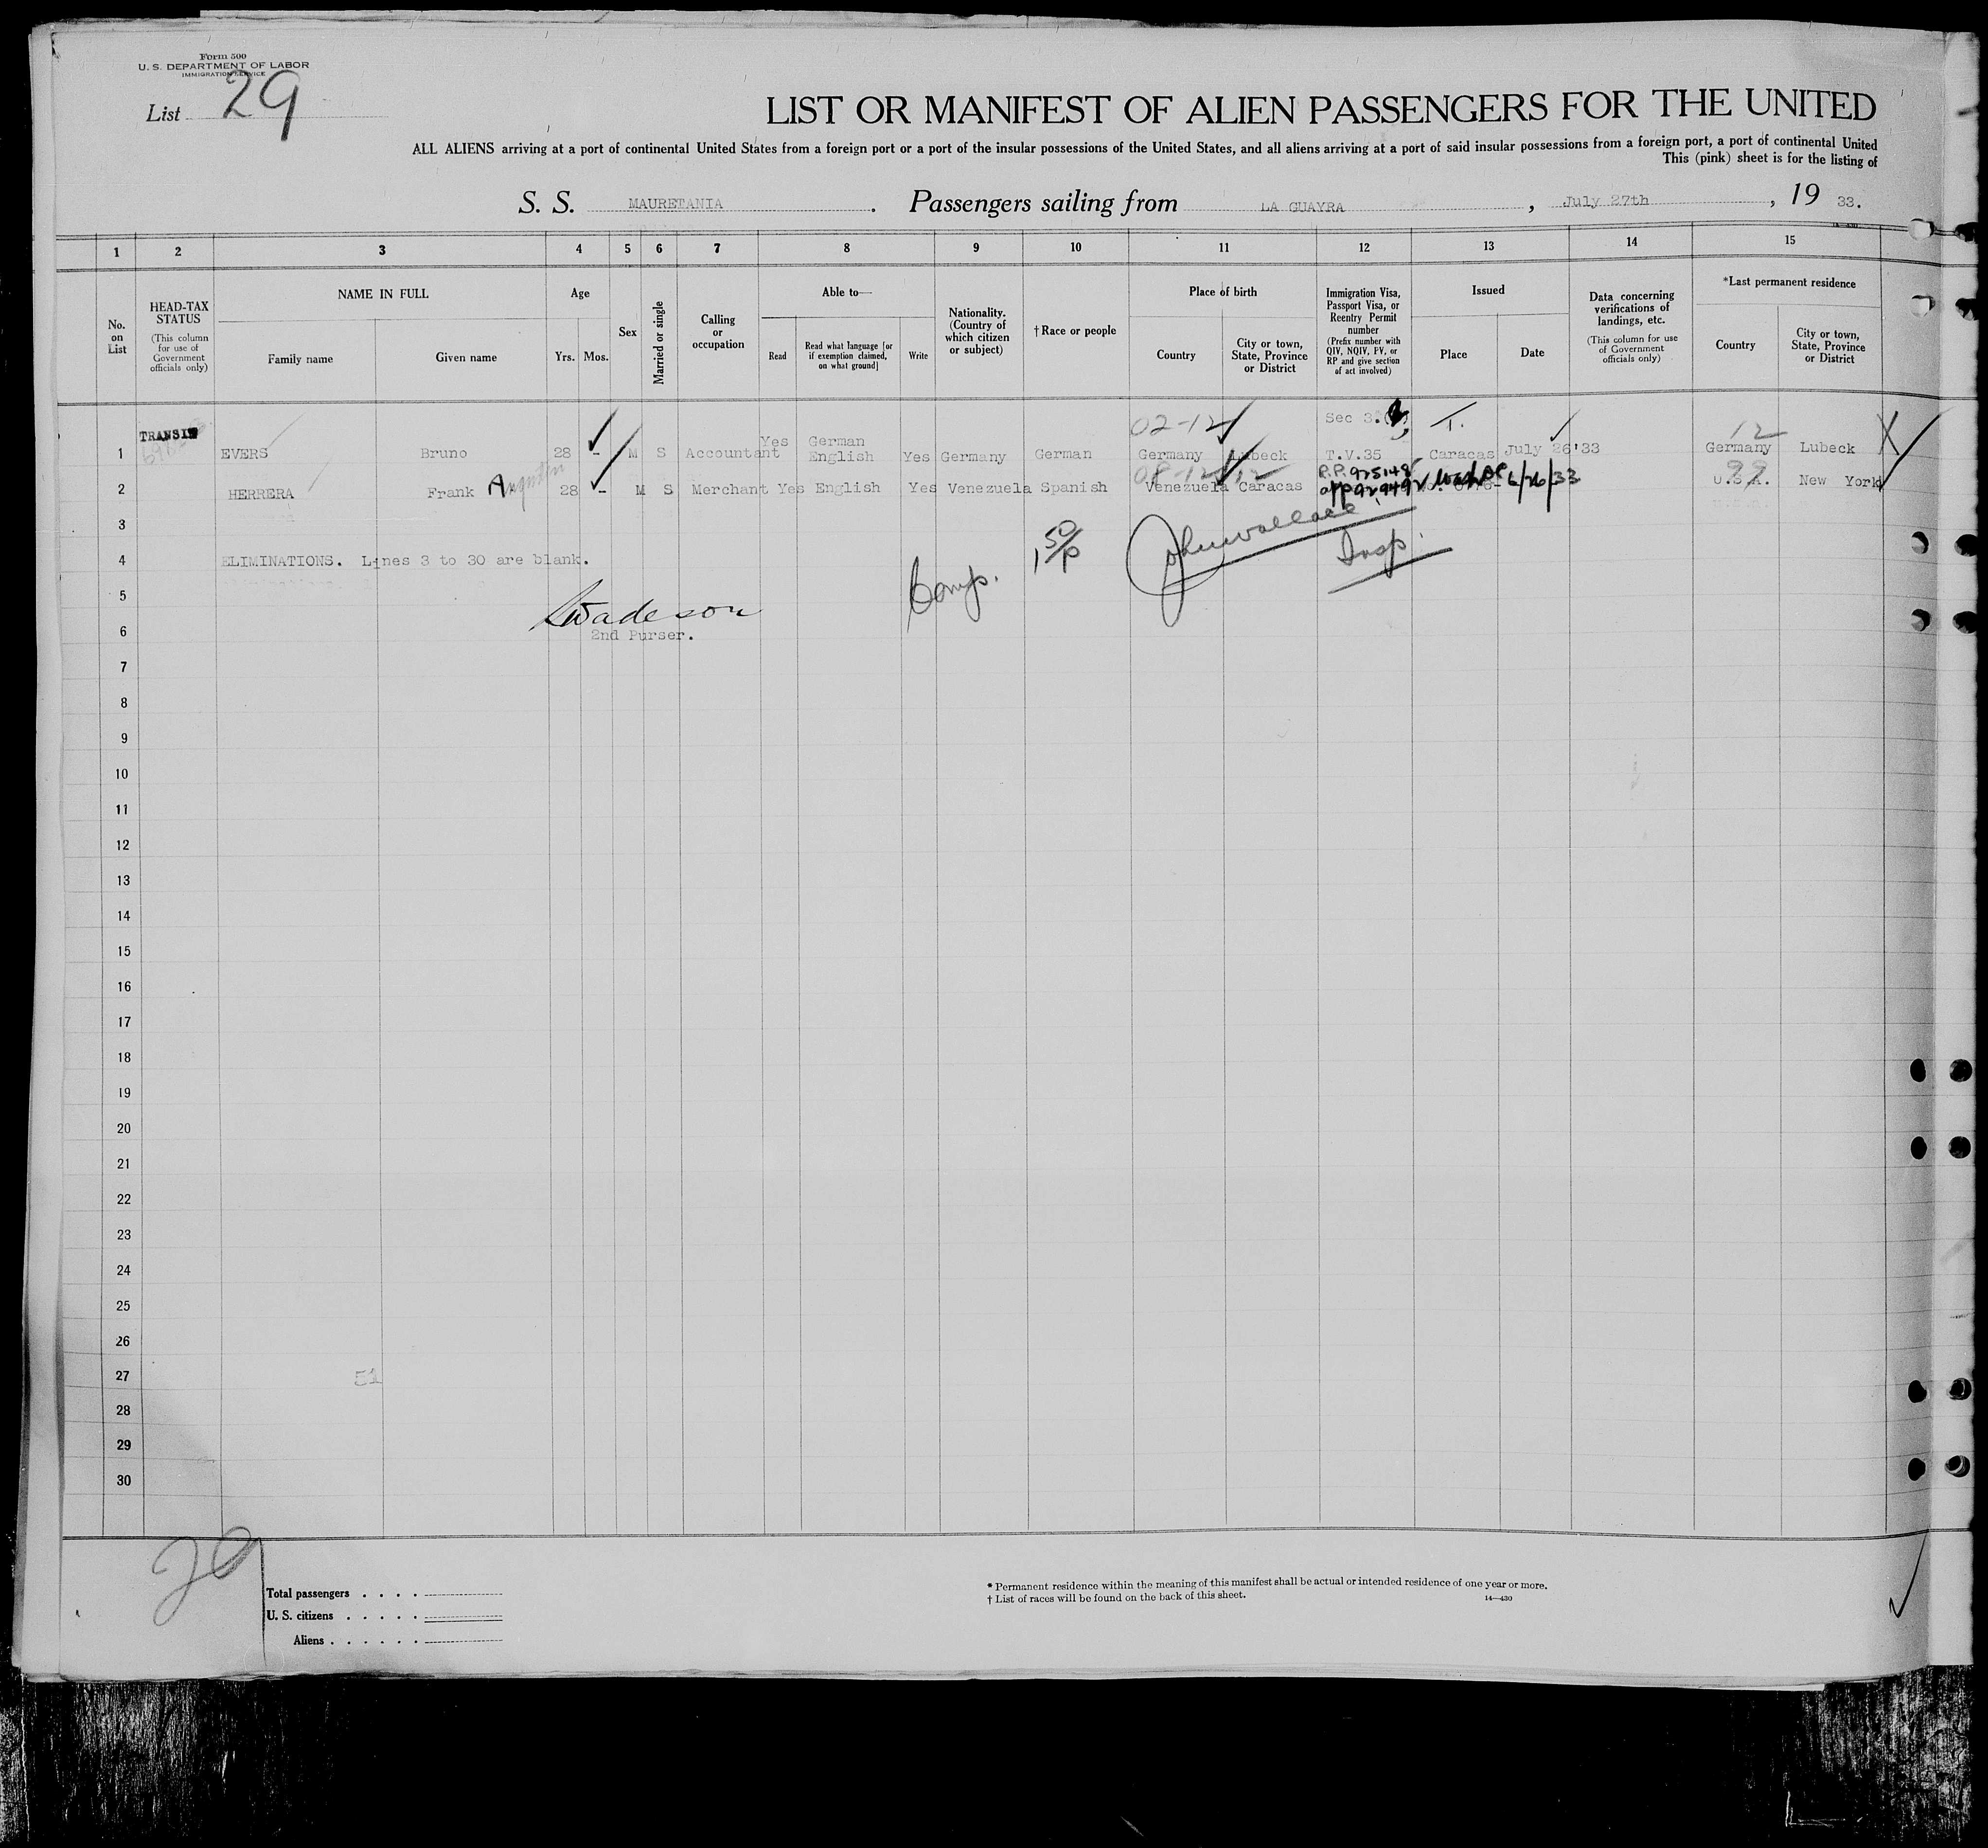 Form 500
U. S. DEPARTMENT OF LABOR
IMMIGRATION SERVICE
List 29
LIST OR MANIFEST OF ALIEN PASSENGERS FOR THE UNITED
ALL ALIENS arriving at a port of continental United States from a foreign port or a port of the insular possessions of the United States, and all aliens arriving at a port of said insular possessions from a foreign port, a port of continental United
This (pink) sheet is for the listing of
S. S. MAURETANIA. Passengers sailing from LA GUAYRA, July 27th, 19 33.
1 2 3 4 5 6 7 8 9 10 11 12 13 14 15
No. on List
HEAD-TAX STATUS
(This column for use of Government officials only)
NAME IN FULL
Family name
Given name
Age
Yrs. Mos.
Sex
Married or single
Calling or occupation
Able to—
Read
Read what language [or if exemption claimed, on what ground]
Write
Nationality. (Country of which citizen or subject)
†Race or people
Place of birth
Country
City or town, State, Province or District
Immigration Visa, Passport Visa, or Reentry Permit number
(Prefix number with QIV, NQIV, PV, or RP and give section of act involved)
Issued
Place
Date
Data concerning verifications of landings, etc.
(This column for use of Government officials only)
*Last permanent residence
Country
City or town, State, Province or District
TRANSIT
02-12
Sec 3.
T.
12
1 EVERS Bruno 28 - M S Accountant Yes German English Yes Germany German Germany Lubeck T.V.35 Caracas July 26'33 Germany Lubeck X
99
2 HERRERA Frank Augustin 28 - M S Merchant Yes English Yes Venezuela Spanish Venezuela Caracas R.P. 925148 Wash DC 6/26/33 U.S.A. New York
3
4 ELIMINATIONS. Lines 3 to 30 are blank.
John Wallace
Insp.
Comp.
5
Wadeson
6 2nd Purser.
7
8
9
10
11
12
13
14
15
16
17
18
19
20
21
22
23
24
25
26
27 51
28
29
30
20
Total passengers . . . .
U. S. citizens . . . . .
Aliens . . . . . .
* Permanent residence within the meaning of this manifest shall be actual or intended residence of one year or more.
† List of races will be found on the back of this sheet.
14—430